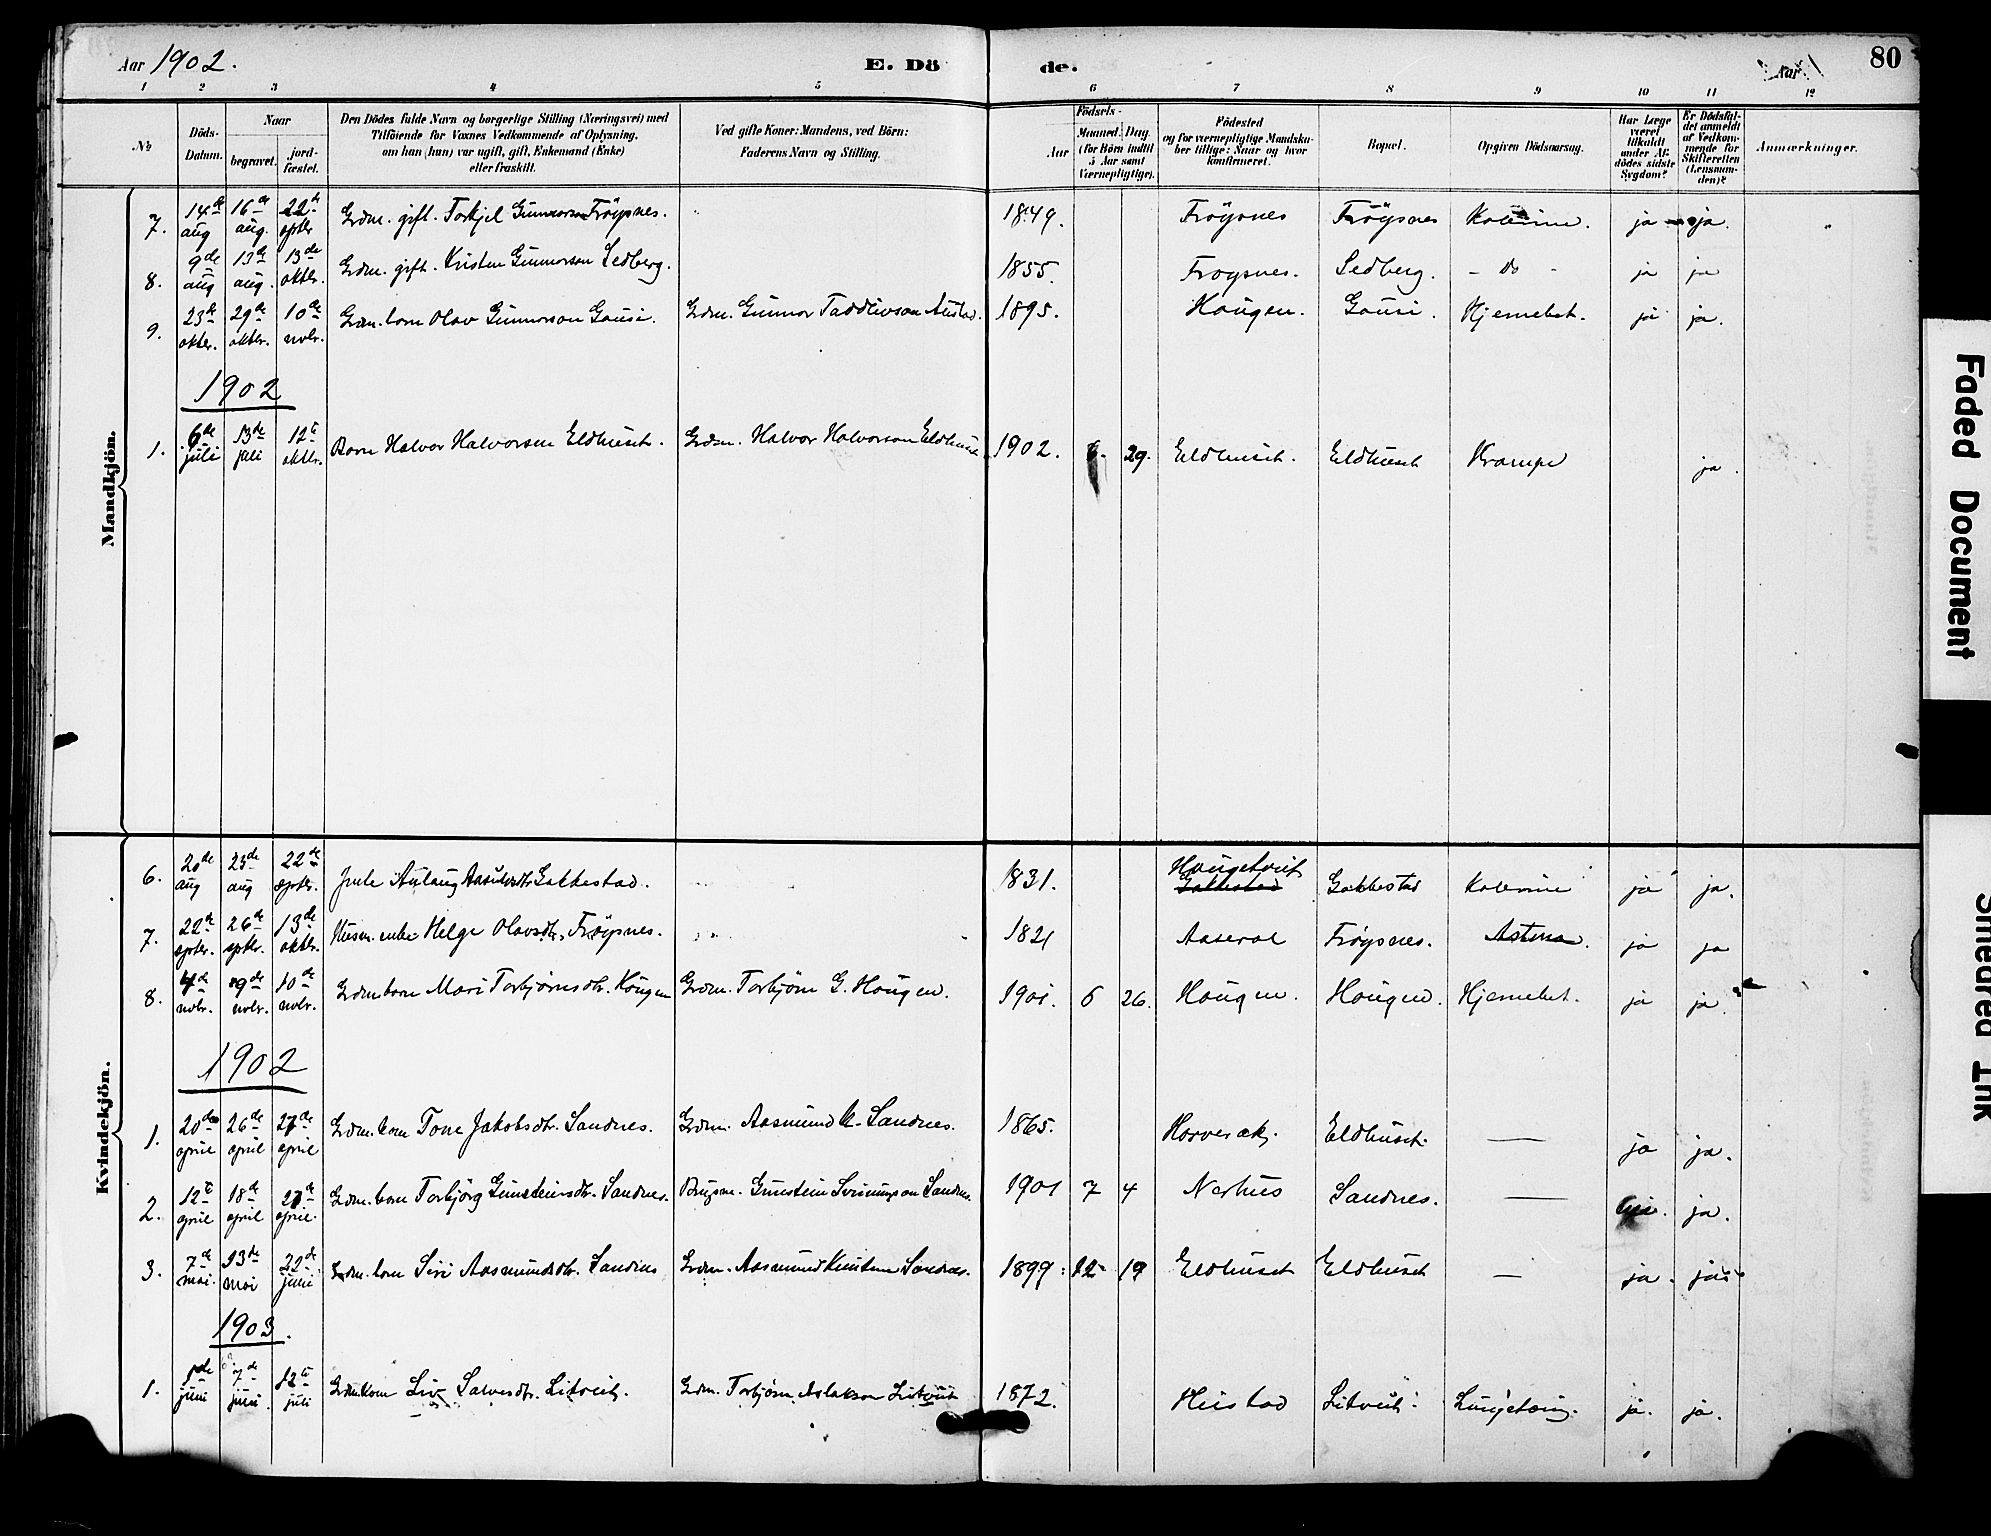 Aar 1902. E. Dö de. Aar 80
1 2 3 4 5 6 7 8 9 10 11 12
№ Döds-Datum. Naar begravet. jord-fæstet. Den Dödes fulde Navn og borgerlige Stilling (Næringsvei) med Tilföiende for Voxnes Vedkommende af Oplysning, om han (hun) var ugift, gift, Enkemand (Enke) eller fraskilt. Ved gifte Koner: Mandens, ved Börn: Faderens Navn og Stilling. Födsels- Aar Maaned. Dag. (for Börn indtil 5 Aar samt Værnepligtige). Födested og for værnepligtige Mandskaber tillige: Naar og hvor konfirmeret. Bopæl. Opgiven Dödsaarsag. Har Læge været tilkaldt under Afdödes sidste Sygdom? Er Dödsfaldet anmeldt af Vedkommende for Skifteretten (Lensmanden)? Anmærkninger.
Mandkjön.
7. 14de aug 16de aug. 22de sptbr Grdm. gift. Torkjel Gunnarson Fröysnes. 1849. Fröysnes Fröysnes Kolerine. ja ja.
8. 9de aug 13de aug. 13de oktbr. Grdm. gift. Kristen Gunnarson Sedberg. 1855. Froysnes. Sedberg. - Do - ja ja
9. 23de oktbr. 29de oktbr. 10de novbr. Grdm. barn Olav Gunnarson Gausi. Grdm. Gunnar Taddivson Austad. 1895. Haugen. Gausi. Hjernebet. ja ja.
1902
1. 6de juli 13de juli 12te oktbr. Barn Halvor Halvorsen Eldhuset. Grdm. Halvor Halvorson Eldhuset. 1902. 29. Eldhuset. Eldhuset Krampe ja.
Kvindekjön.
6. 20de aug 23de aug 22de sptbr. Aslaug Aasulvsdtr Gakkestad. 1831. Haugetveit Gakkestad Gakkestad Kolerine ja ja.
7. 22de sptbr. 26de sptbr. 13de oktbr. enke Helge Olavsdtr. Fröysnes. 1821 Aaseral Fröysnes. Astma. ja ja
8. 4de novbr. 9de novbr. 10de novbr. Grdm barn Mari Torbjörnsdtr. Haugen Grdm. Torbjörn G. Haugen. 1901. 6 26. Haugen. Haugen. Hjernebet. ja ja.
1902
1. 20de april 26de april 27de april Grdm. kone Tone Jakobsdtr. Sandnes. Grdm. Aasmund K. Sandnes. 1865. Horverak. Eldhuset. — ja ja.
2. 12te april 18de april 27de april. Grdm. barn Torbjörg Gunsteinsdtr. Sandnes. Brugsm. Gunstein Sandnes. 1901 7 4 Nerhus Sandnes. — ja.
3. 7de mai. 23de mai 22de juni Grdm. barn Siri Aasmundsdtr. Sandnes Grdm. Aasmund Knutsen Sandnes. 1899. 12 19 Eldhuset Eldhuset — ja. ja
1903.
1. juni 7de juni. 12te juli Grdm kone Liv Salvesdtr. Litveit. Grdm. Torbjörn Aslakson Litveit 1872. Heistad Litveit. Lungetæring. ja. ja.
Faded Document
Smeared Ink